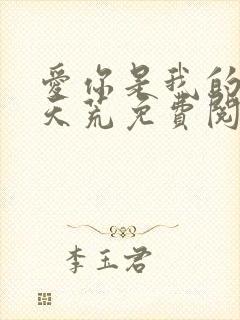 愛你是我的
天荒免費閱
李玉君